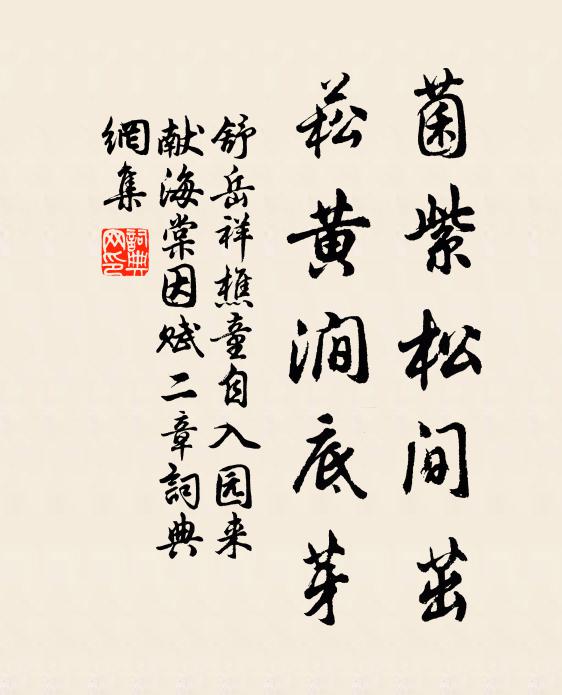 菌紫松间茁
菘黄涧底芽
舒岳祥樵童自入园来
献海棠因赋二章詞典
網集
詞典
网印